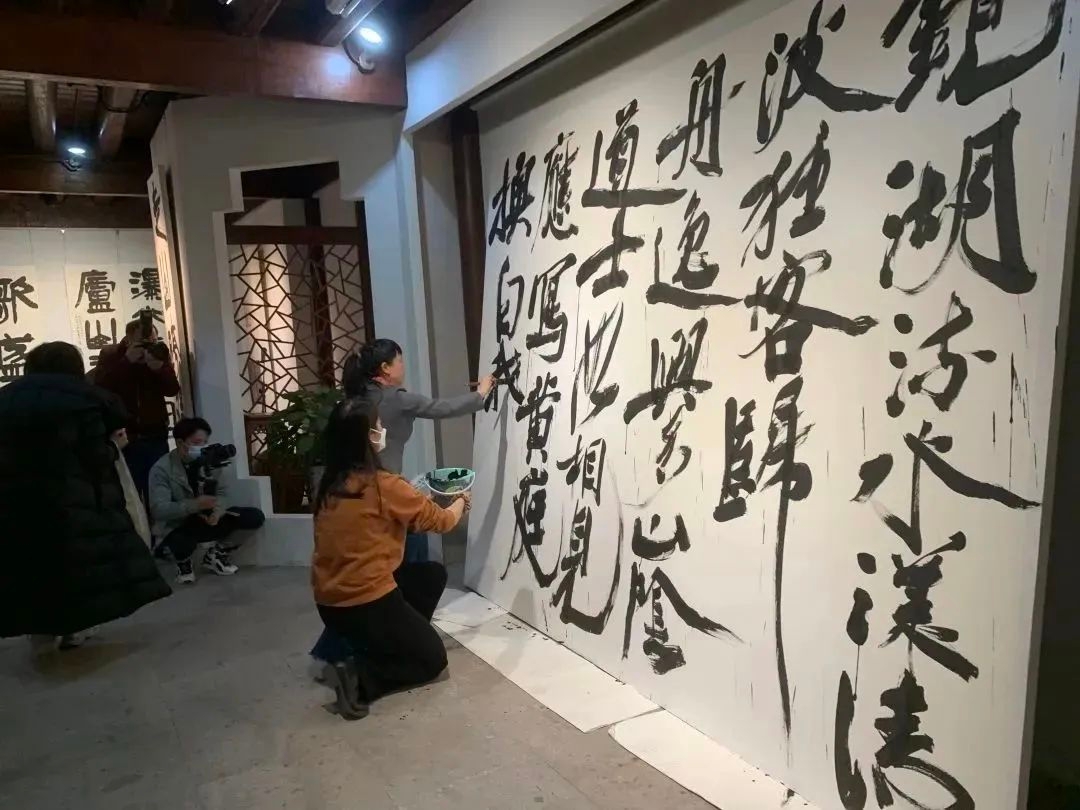 鏡湖流水漾清
波狂客歸
舟逸興多山陰
道士如相見
應寫黃庭
換白我
瀑
廬山
歌